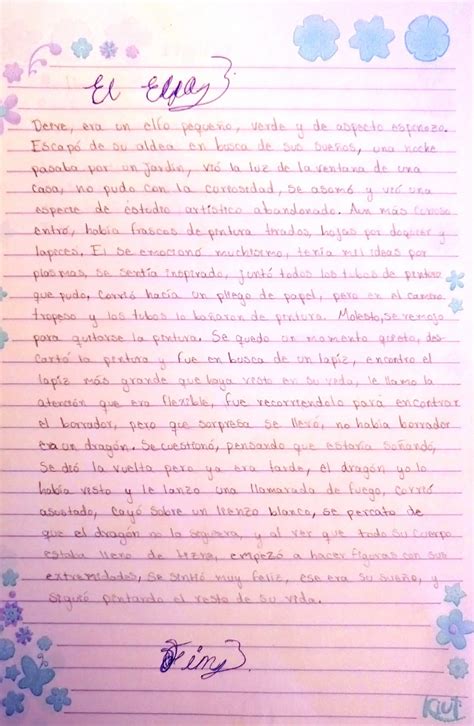 El Elfo
Derre, era un elfo pequeño, verde y de aspecto esponjozo.
Escapó de su aldea en busca de sus sueños, una noche
pasaba por un jardín, vió la luz de la ventana de una
casa, no pudo con la curiosidad, se asomó y vió una
especie de éstudio artístico abandonado. Aun más curioso
entró, había frascos de pintura tirados, hojas por doquier y
lapices. El se emocionó muchisimo, tenía mil ideas por
plasmas, se sentía inspirado, juntó todos los tubos de pintura
que pudo, corrió hacía un pliego de papel, pero en el camino
tropeso y los tubos lo bañaron de pintura. Molesto, se remojo
para quitarse la pintura. Se quedo un momento quieto, des-
cartó la pintura y fue en busca de un lapiz, encontro el
lapiz más grande que haya visto en su vida, le llamo la
atención que era flexible, fue recorriendolo pará encontrar
el borrador, pero que sorpresa se llevó, no había borrador
era un dragón. Se cuestionó, pensando que estaría soñando,
se dió la vuelta pero ya era tarde, el dragón ya lo
había visto y le lanzo una llamarada de fuego, corrió
asustado, cayó sobre un lienzo blanco, se percato de
que el dragón no la seguía, y al ver que todo su cuerpo
estaba lleno de tizne, empezó a hacer figuras con sus
extremidades, se sintió muy feliz, ese era su sueño, y
siguió pintando el resto de su vida.
Fin
Kiut